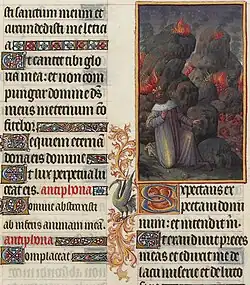 sti sanctum meum et
circumdedisti me letici
a
Et cantet tibi glo
ria mea: et non com
pungar domine deus
meus in eternum con
fitebor
Requiem eternam
dona eis domine
Et lux perpetua lu
ceat eis. antiphona
Domine abstraxisti
ab inferis animam meam.
antiphona
Complaceat
Expectans ex
pectaui domi
num: et intendit michi
Et exaudiuit preces
meas et eduxit me de
lacu miserie et de luto